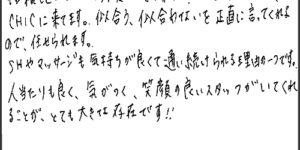 CHICに来てます。似合う、似合わないを正直に言ってくれる
ので、任せられます。
SHやマッサージも気持ちが良くて通い続けられる理由の一つです。
人当たりも良く、気がつく、笑顔の良いスタッフがいてくれ
ることが、とても大きな存在です!!